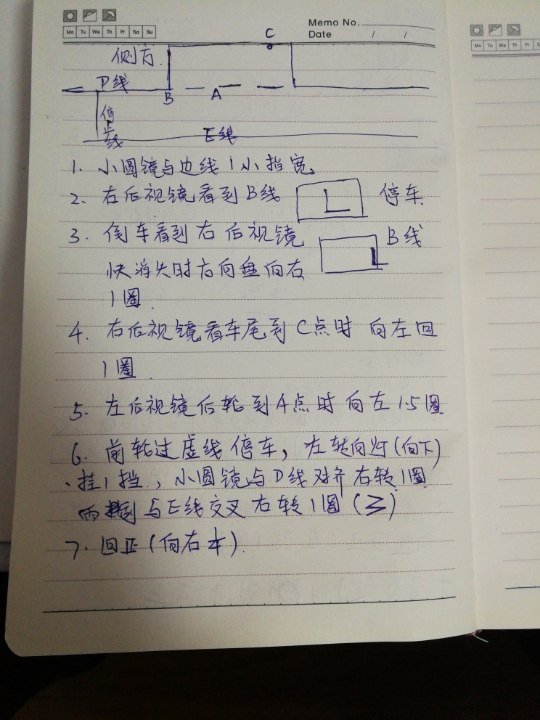 Memo No.
Mo Tu We Th Fr Sa Su
Date / /
C
侧方
D线
B
A
停止线
E线
1. 小圆镜与边线1小指宽。
2. 右后视镜看到B线 停车.
3. 倒车看到右后视镜 B线
快消失时方向盘向右
1圈.
4. 右后视镜看车尾到C点时 向左回
1圈.
5. 左后视镜后轮到A点时 向左1.5圈
6. 前轮过虚线停车, 左转向灯(向下)
、挂1挡, 小圆镜与D线对齐右转1圈
与E线交叉右转1圈
7. 回正(向右).
Mo Tu We Th Fr